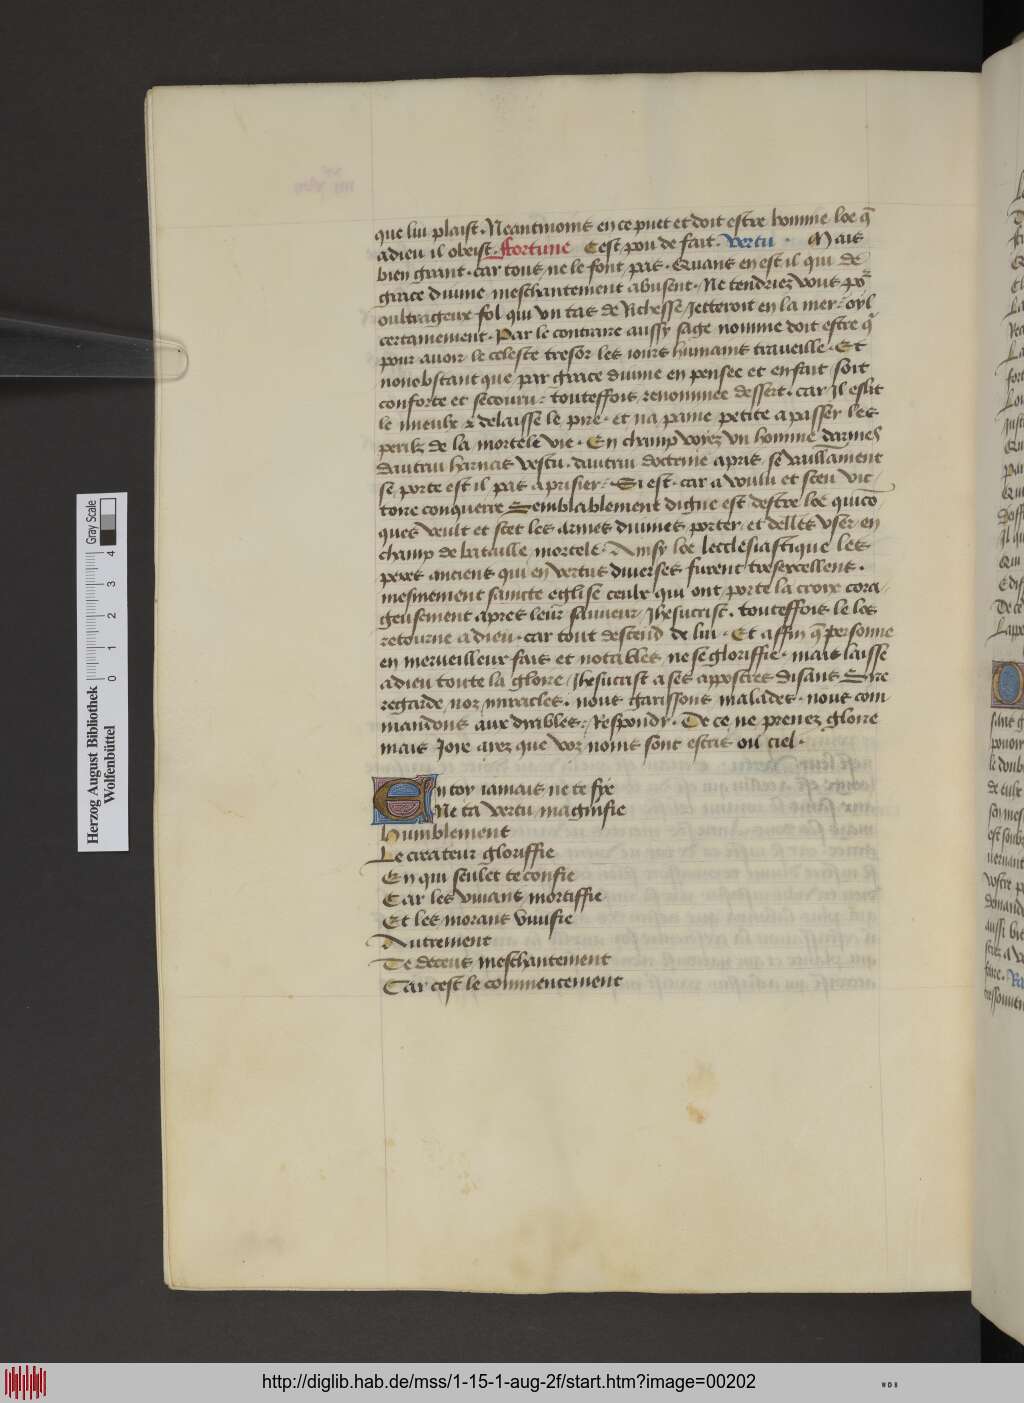 que lui plaist. Neantmoins en ce puet et doit estre homme loe q̄
adieu il obeist. Fortune Cest pou de fait. Vertu. Mais
bien grant. car tous ne le font pas. Quans en est il qui de
grace diuine meschantement abusent. Ne tendriez vous po͛
oultrageux fol qui vn tas de Richesse Jetteroit en la mer. oyl
certainement. Par le contraire aussy sage homme doit estre q̄
pour auoir le celeste tresor les iours humains traueille. Et
nonobstant que par grace diuine en pensee et en fait soit
conforte et secouru. touteffois renommee dessert. car Il eslit
le mieulx & delaisse le pire. et na paine petite a passer les
perilz de la mortele vie. En champ voyez vn homme darmes
dautrui harnas vestu. dautrui doctrine apris se vaillāment
se porte est il pas a prisier. Si est. car a voulu et sceu vic
toire conquerre Semblablement digne est destre loe quicō
ques veult et scet les armes diuines porter et delles vser en
champ de bataille mortele. Ainsy loe lecclesiastique les
peres anciens qui en vertus diuerses furent tresexcellens.
mesmement saincte eglise ceulx qui ont porte la croix cora
geusement apres leur sauueur Jhesucrist. touteffois le los
retourne a dieu. car tout descend de lui. Et affin q̄ personne
en merueilleux fais et notables ne se gloriffie. mais laisse
a dieu toute la gloire Jhesucrist a ses appostres disans Sire
regarde noz miracles. nous garissons malades. nous com
mandons aux dyables. Respondy. De ce ne prenez gloire
mais Joie aiez que voz noms sont escris ou ciel.
En toy iamais ne te fye
Ne ta vertu magnifie
Humblement
Le createur gloriffie
En qui seulet te confie
Car les viuans mortiffie
Et les morans viuifie
Autrement
Te decens meschantement
Car cest le commencement
Herzog August Bibliothek
Wolfenbüttel
0 1 2 3 4
Gray Scale
http://diglib.hab.de/mss/1-15-1-aug-2f/start.htm?image=00202
WDB